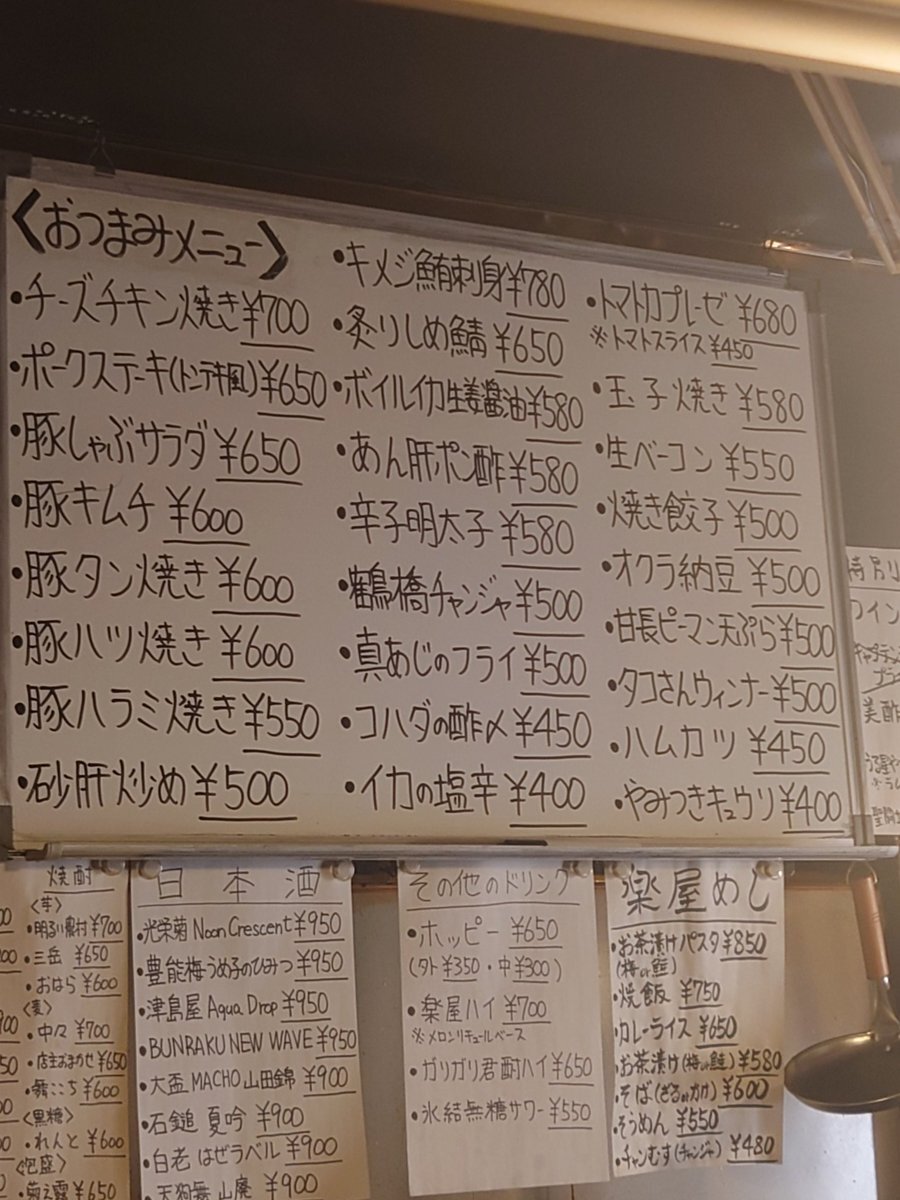 〈おつまみメニュー〉
・チーズチキン焼き¥700
・ポークステーキ(トンテキ風)¥650
・豚しゃぶサラダ¥650
・豚キムチ ¥600
・豚タン焼き ¥600
・豚ハツ焼き ¥600
・豚ハラミ焼き¥550
・砂肝炒め¥500
・キメジ鮪刺身¥780
・炙りしめ鯖¥650
・ボイルイカ生姜醤油¥580
・あん肝ポン酢¥580
・辛子明太子¥580
・鶴橋チャンジャ¥500
・真あじのフライ¥500
・コハダの酢〆¥450
・イカの塩辛¥400
・トマトカプレーゼ¥680
※トマトスライス¥450
・玉子焼き¥580
・生ベーコン¥550
・焼き餃子¥500
・オクラ納豆¥500
・甘長ピーマン天ぷら¥500
・タコさんウィンナー¥500
・ハムカツ ¥450
・やみつきキュウリ¥400
焼酎
〈芋〉
・明るい農村¥700
・三岳 ¥650
・おはら¥600
〈麦〉
・中々 ¥700
・店主おまかせ¥650
・舞ここち¥600
〈黒糖〉
・れんと¥600
・菊之露¥650
日本酒
・光栄菊 Noon Crescent¥950
・豊能梅うめ子のひみつ¥950
・津島屋 Aqua Drop¥950
・BUNRAKU NEW WAVE¥950
・大盃 MACHO 山田錦¥900
・石鎚 夏吟 ¥900
・白老 はぜラベル¥900
・天狗舞 山廃 ¥900
その他のドリンク
・ホッピー ¥650
(外 ¥350・中¥300)
・楽屋ハイ ¥700
※メロンリキュールベース
・ガリガリ君酎ハイ¥650
・氷結無糖サワー¥550
楽屋めし
・お茶漬けパスタ¥850
(梅or鮭)
・焼飯 ¥750
・カレーライス¥650
・お茶漬け(梅or鮭)¥580
・そば(ざるorかけ)¥600
・そうめん ¥550
・チャンむす(チャンジャ)¥480
特別
ワイン
美酢